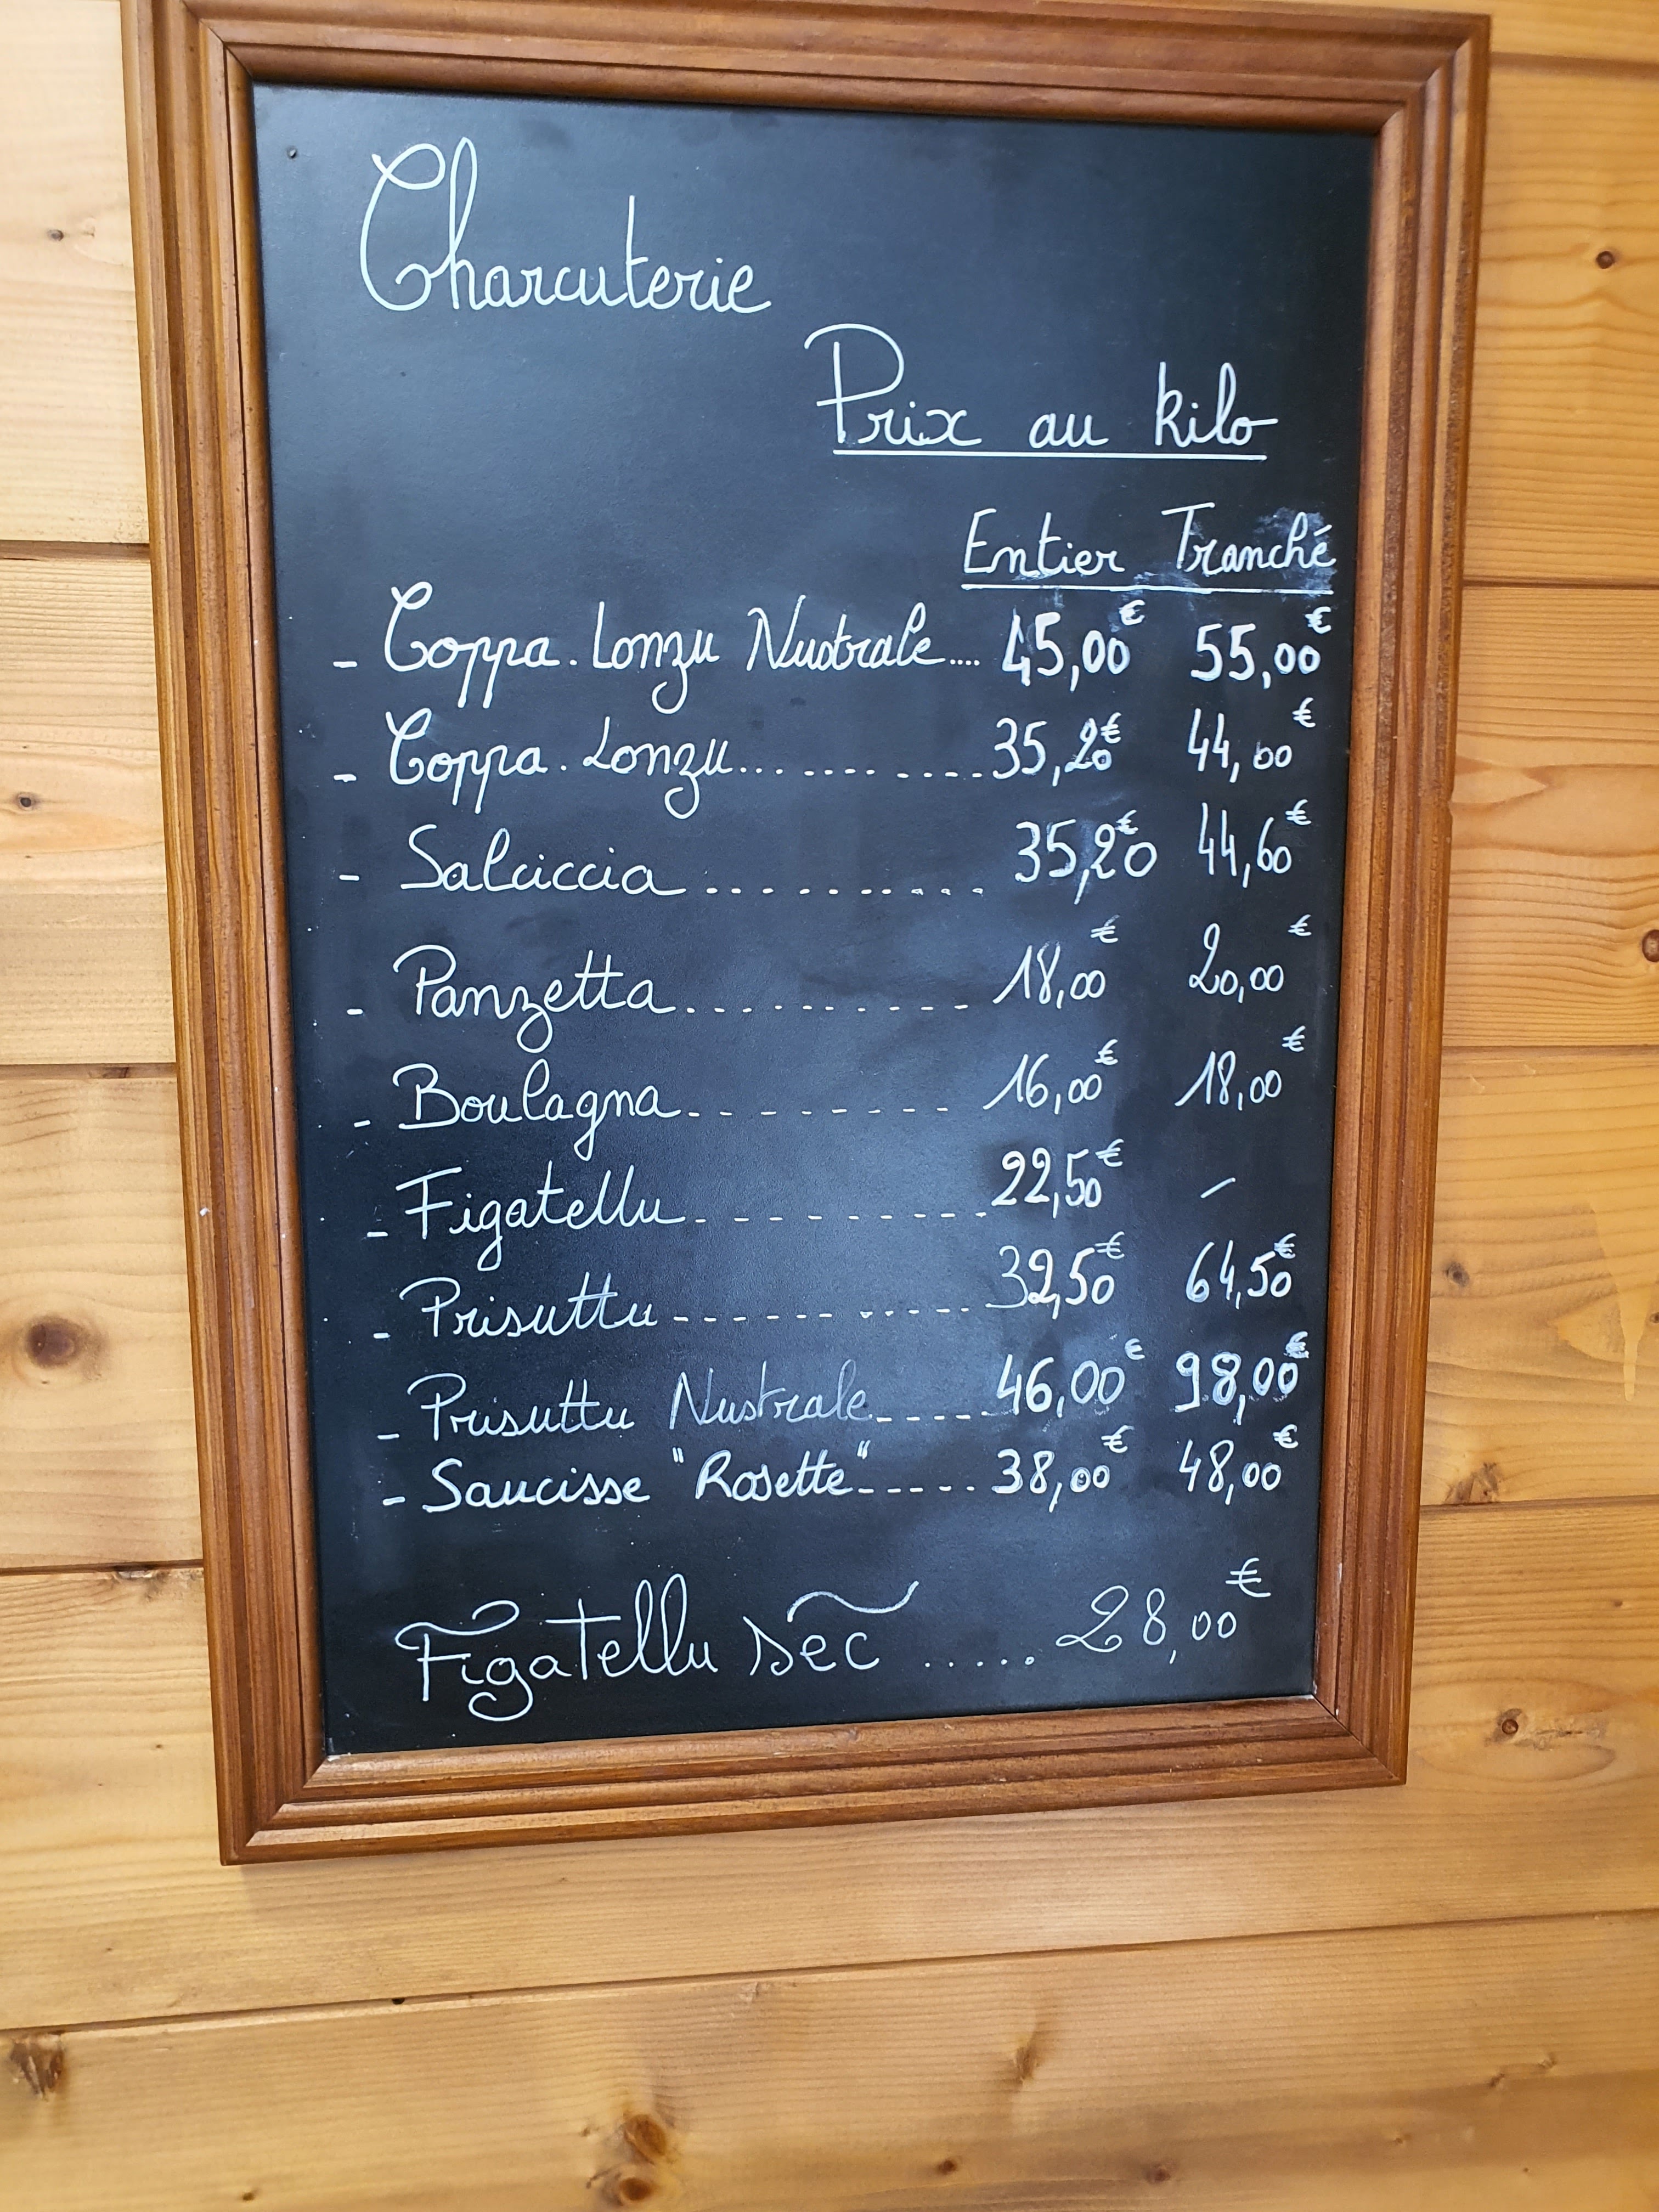 Charcuterie
Prix au kilo
Entier Tranché
- Coppa. Lonzu Nustrale.... 45,00€ 55,00€
- Coppa. Lonzu... .... ....35,20€ 44,60€
- Salciccia .......... 35,20€ 44,60€
- Panzetta.......... 18,00€ 20,00€
- Boulagna........ 16,00€ 18,00€
- Figatellu..........22,50€ -
- Prisuttu...........32,50€ 64,50€
- Prisuttu Nustrale.....46,00€ 98,00€
- Saucisse "Rosette"..... 38,00€ 48,00€
Figatellu sec ..... 28,00€